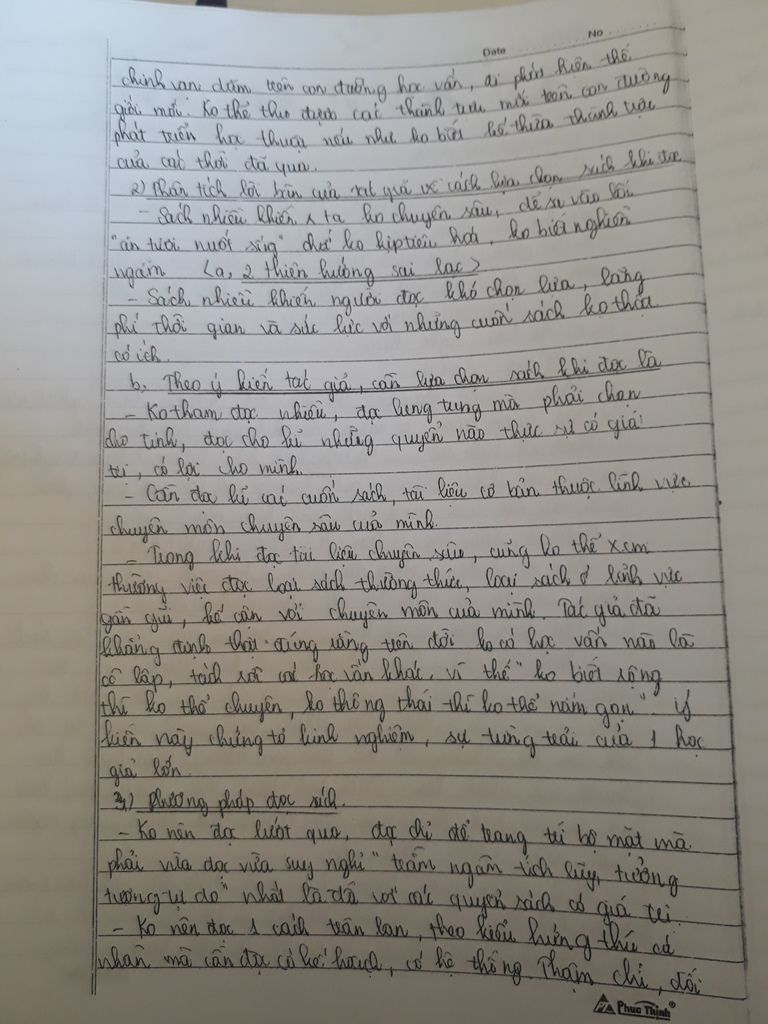 Date No
chinh vạn dăm trên con đường học vấn, đi phát hiện thế
giới mới. Ko thể thu được các thành tựu mới trên con đường
phát triển học thuật nếu như ko biết kế thừa thành tựu
của các thời đã qua.
2) Phân tích lời bàn của tác giả về cách lựa chọn sách khi đọc
- Sách nhiều khiến 1 ta ko chuyên sâu, dễ sa vào lối
"ăn tươi nuốt sống" chứ ko kịp tiêu hoá, ko biết nghiền
ngẫm <a, 2 thiên hướng sai lạc>
- Sách nhiều khiến người đọc khó chọn lựa, lãng
phí thời gian và sức lực với những cuốn sách ko thật
có ích.
b, Theo ý kiến tác giả, cần lựa chọn sách khi đọc là
- Ko tham đọc nhiều, đọc lung tung mà phải chọn
cho tinh, đọc cho kĩ những quyển nào thực sự có giá
trị, có lợi cho mình.
- Cần đọc kĩ các cuốn sách, tài liệu cơ bản thuộc lĩnh vực
chuyên môn chuyên sâu của mình.
- Trong khi đọc tài liệu chuyên sâu, cũng ko thể xem
thường việc đọc loại sách thường thức, loại sách ở lĩnh vực
gần gũi, kế cận với chuyên môn của mình. Tác giả đã
khẳng định thật đúng rằng trên đời ko có học vấn nào là
cô lập, tách rời các học vấn khác, vì thế "ko biết rộng
thì ko thể chuyên, ko thông thái thì ko thể nắm gọn" ý
kiến này chứng tỏ kinh nghiệm, sự từng trải của 1 học
giả lớn.
3) Phương pháp đọc sách.
- Ko nên đọc lướt qua, đọc chỉ để trang trí bộ mặt mà
phải vừa đọc vừa suy nghĩ "trầm ngâm tích lũy, tưởng
tượng tự do" nhất là đối với các quyển sách có giá trị
- Ko nên đọc 1 cách tràn lan, theo kiểu hứng thú cá
nhân mà cần đọc có kế hoạch, có hệ thống. Thậm chí, đối
Phúc Thịnh